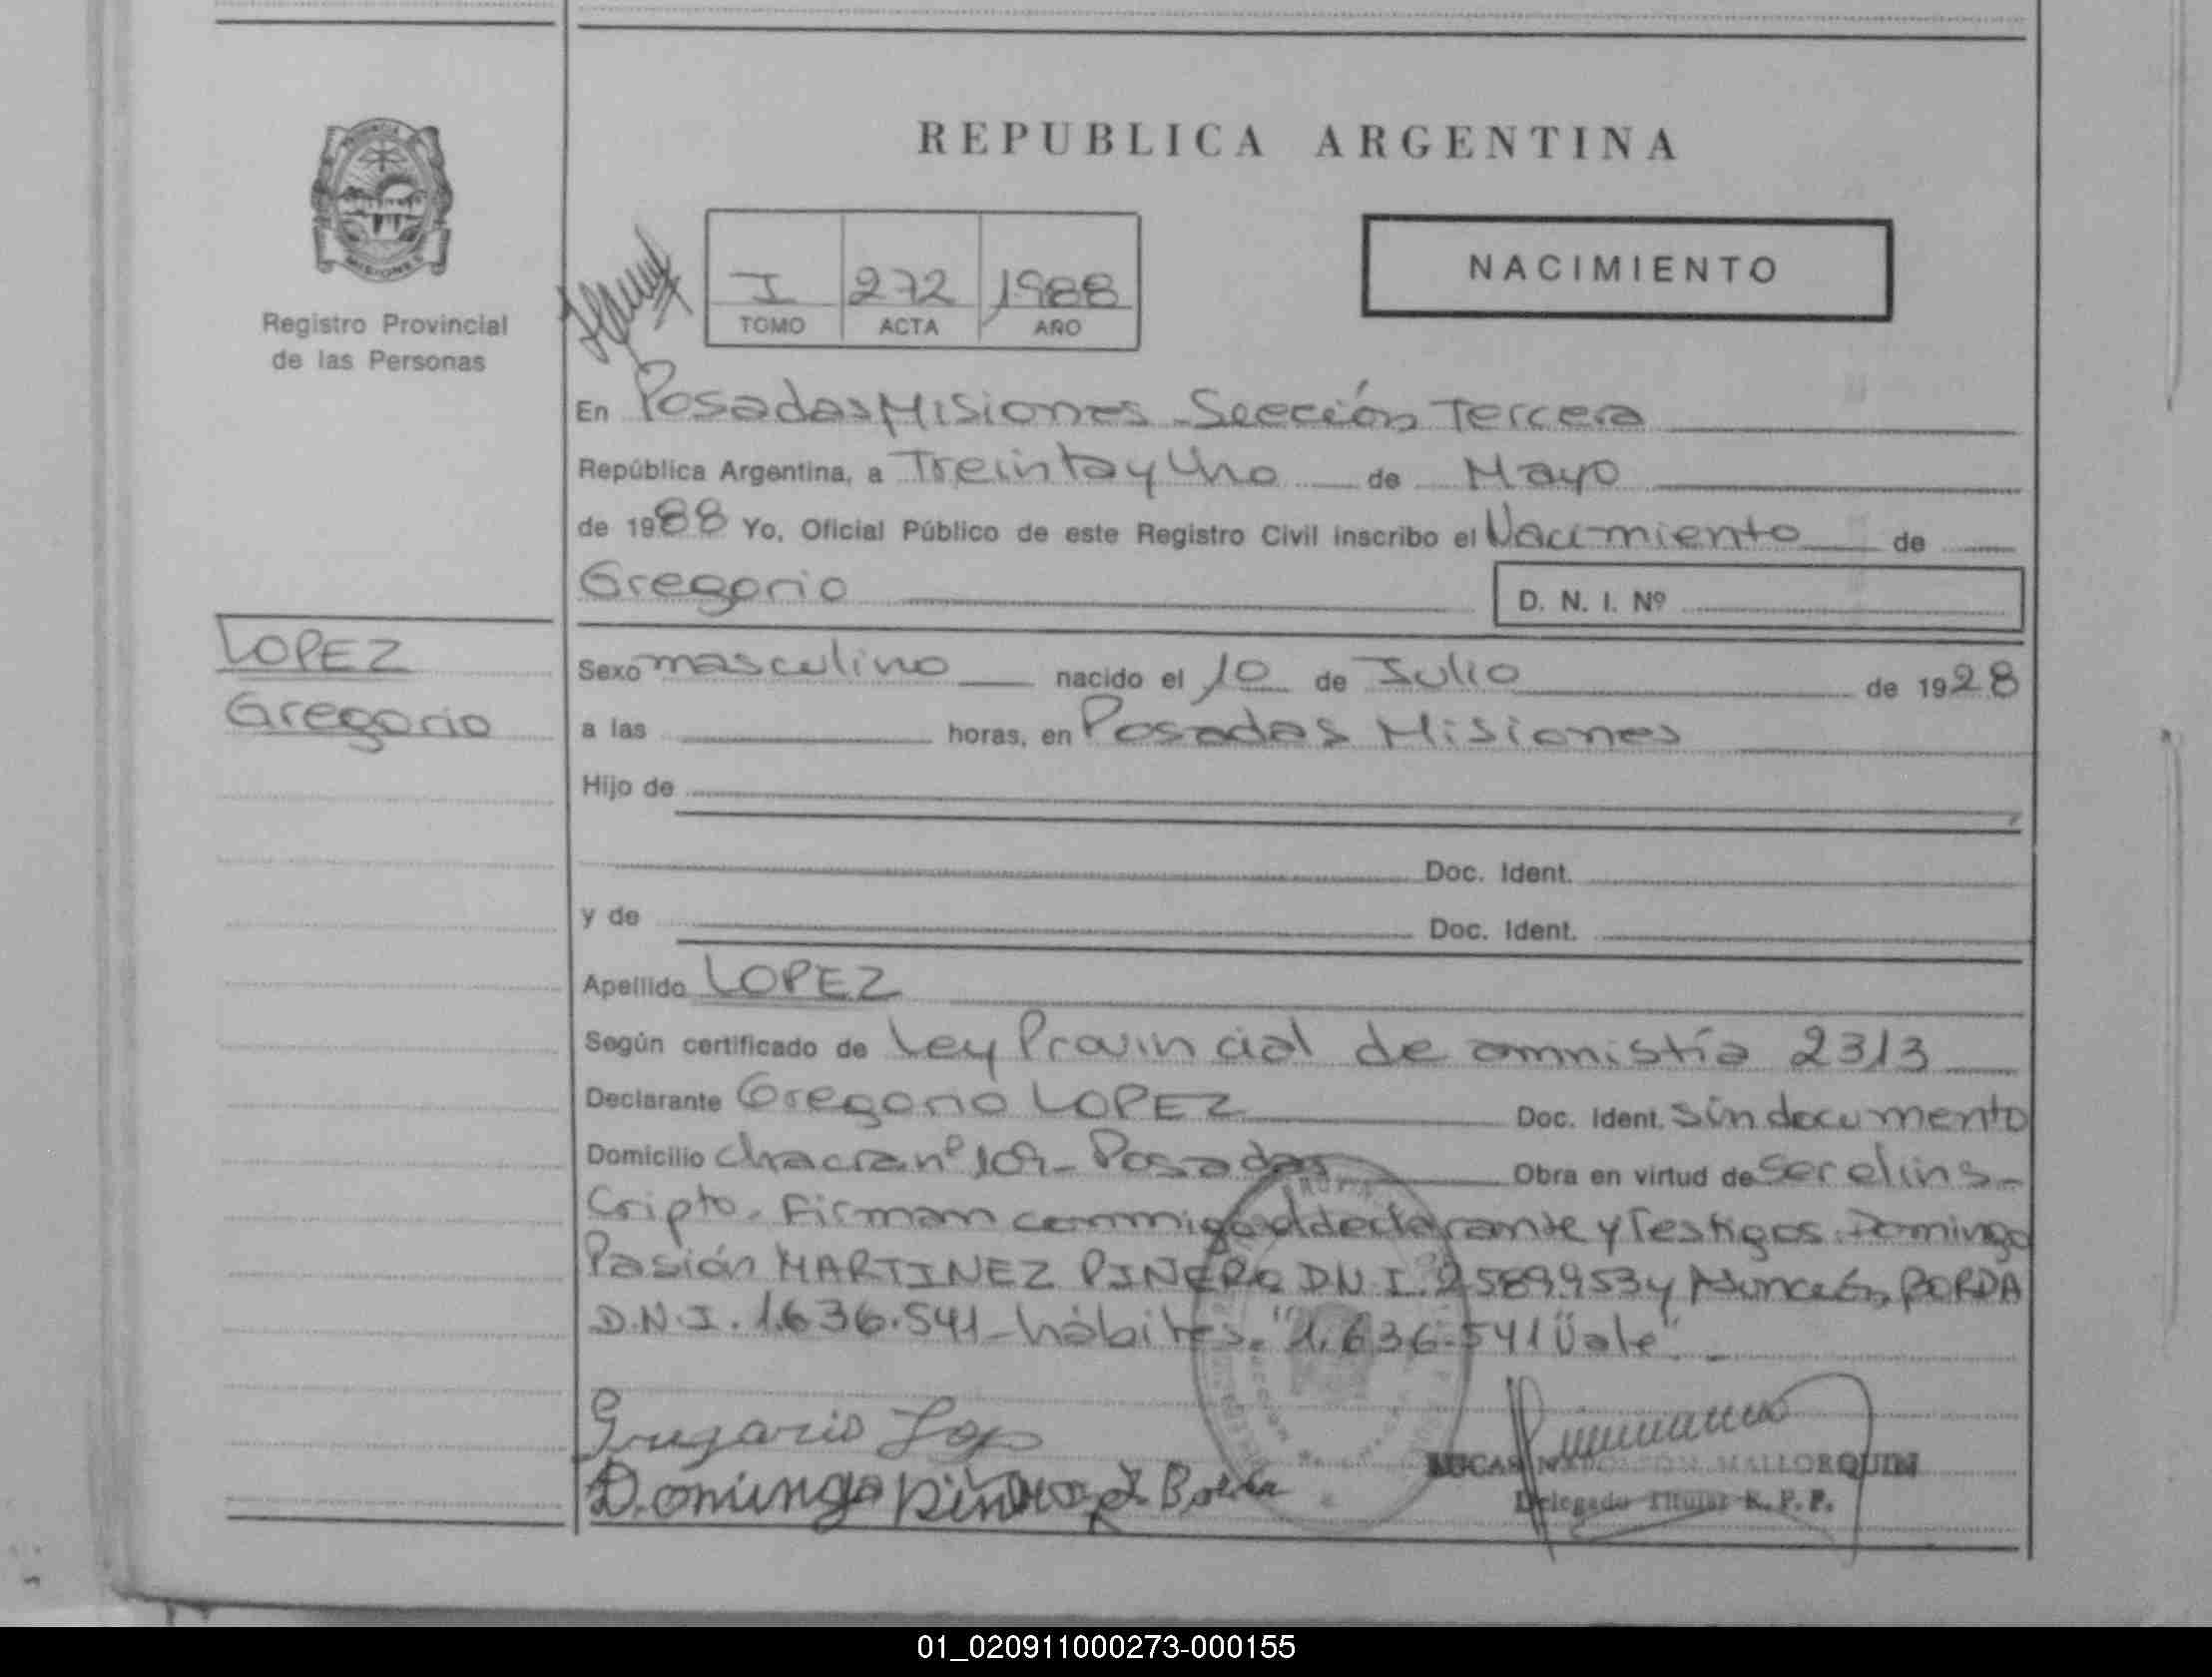 REPUBLICA ARGENTINA
MISIONES
Registro Provincial
de las Personas
I 272 1988
TOMO ACTA AÑO
NACIMIENTO
En Posadas Misiones - Sección Tercera
República Argentina, a Treinta y Uno de Mayo
de 1988 Yo, Oficial Público de este Registro Civil inscribo el Nacimiento de
Gregorio D. N. I. Nº
LOPEZ
Gregorio
Sexo masculino nacido el 10 de Julio de 1928
a las horas, en Posadas Misiones
Hijo de
Doc. Ident.
y de Doc. Ident.
Apellido LOPEZ
Según certificado de Ley Provincial de amnistía 2313
Declarante Gregorio LOPEZ Doc. Ident. sin documento
Domicilio chacra nº 109 - Posadas Obra en virtud de ser el ins-
cripto. Firman conmigo el declarante y Testigos Domingo
Pasión MARTINEZ PIÑERO D.N.I. 2589953 y Asunción BORDA
D.N.I. 1.636.541 - hábiles. "1.636.541 Vale" -
Gregorio Lop
Domingo Piñero Borda
LUCAS NAPOLEON MALLORQUIN
Delegado Titular R. P. P.
01_020911000273-000155